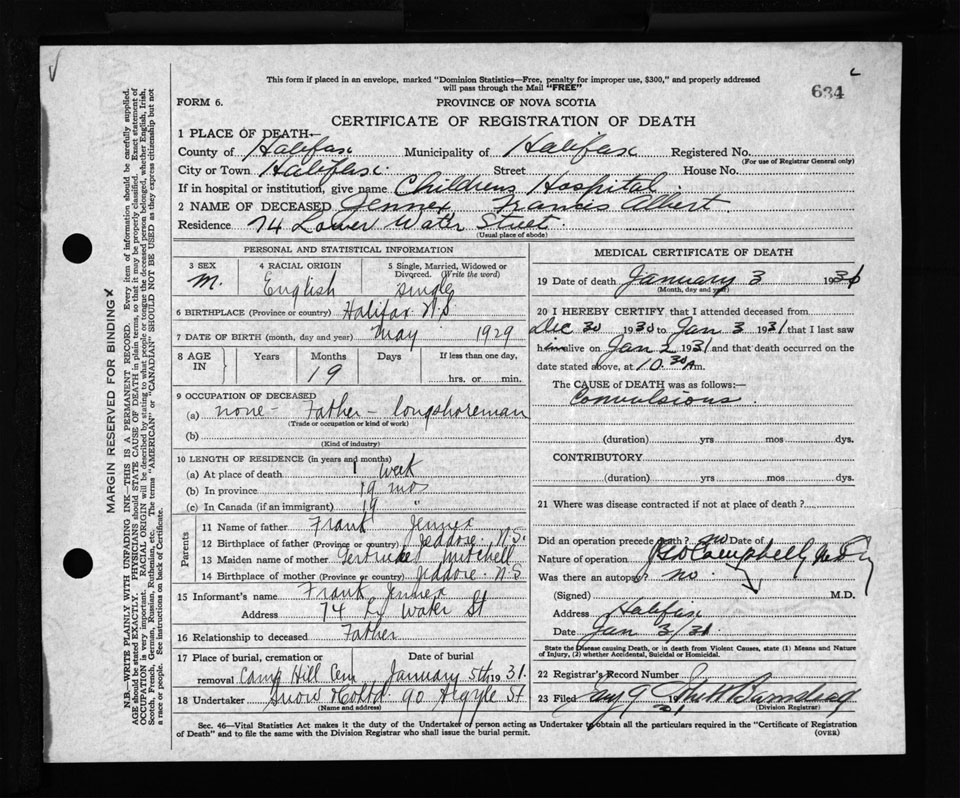 This form if placed in an envelope, marked "Dominion Statistics—Free, penalty for improper use, $300," and properly addressed
will pass through the Mail "FREE"
634
FORM 6.
PROVINCE OF NOVA SCOTIA
CERTIFICATE OF REGISTRATION OF DEATH
1 PLACE OF DEATH—
County of Halifax Municipality of Halifax Registered No.
(For use of Registrar General only)
City or Town Halifax Street House No.
If in hospital or institution, give name Childrens Hospital
2 NAME OF DECEASED Jennex Francis Albert
Residence 74 Lower Water Street
(Usual place of abode)
PERSONAL AND STATISTICAL INFORMATION
3 SEX 4 RACIAL ORIGIN 5 Single, Married, Widowed or Divorced. (Write the word)
M. English single
6 BIRTHPLACE (Province or country) Halifax N.S
7 DATE OF BIRTH (month, day and year) May 1929
8 AGE IN Years Months Days If less than one day,
19 hrs. or min.
9 OCCUPATION OF DECEASED
(a) none - Father - longshoreman
(Trade or occupation or kind of work)
(b)
(Kind of industry)
10 LENGTH OF RESIDENCE (in years and months)
(a) At place of death 1 week
(b) In province 19 mos
(c) In Canada (if an immigrant) 19 "
Parents
11 Name of father Frank Jennex
12 Birthplace of father (Province or country) Jeddore. N.S.
13 Maiden name of mother Gertrude Mitchell
14 Birthplace of mother (Province or country) Jeddore. N.S
15 Informant's name Frank Jennex
Address 74 Lr Water St
16 Relationship to deceased Father
17 Place of burial, cremation or Date of burial
removal Camp Hill Cem January 5th 1931.
18 Undertaker Snow & Co Ltd 90 Argyle St
(Name and address)
MEDICAL CERTIFICATE OF DEATH
19 Date of death January 3 1931
(Month, day and year)
20 I HEREBY CERTIFY that I attended deceased from
Dec 30 1930 to Jan 3 1931 that I last saw
him alive on Jan 2 1931 and that death occurred on the
date stated above, at 10.30 A m.
The CAUSE OF DEATH was as follows:—
Convulsions
(duration) yrs mos dys.
CONTRIBUTORY
(duration) yrs mos dys.
21 Where was disease contracted if not at place of death?
Did an operation precede death? no Date of
Nature of operation
Was there an autopsy? no
(Signed) Campbell M.D.
Address Halifax
Date Jan 3/31
State the Disease causing Death, or in death from Violent Causes, state (1) Means and Nature
of Injury, (2) whether Accidental, Suicidal or Homicidal.
22 Registrar's Record Number
23 Filed 31
(Division Registrar)
Sec. 46—Vital Statistics Act makes it the duty of the Undertaker or person acting as Undertaker to obtain all the particulars required in the "Certificate of Registration
of Death" and to file the same with the Division Registrar who shall issue the burial permit.
(OVER)
MARGIN RESERVED FOR BINDING
N.B.—WRITE PLAINLY WITH UNFADING INK—THIS IS A PERMANENT RECORD. Every item of information should be carefully supplied.
AGE should be stated EXACTLY. PHYSICIANS should STATE CAUSE OF DEATH in plain terms, so that it may be properly classified. Exact statement of
OCCUPATION is very important. RACIAL ORIGIN will be described by stating to what people or tongue the deceased person belonged, whether English, Irish,
Scotch, French, German, Russian, Ruthenian, etc. The terms "AMERICAN" or "CANADIAN" SHOULD NOT BE USED as they express citizenship but not
a race or people. See instructions on back of Certificate.